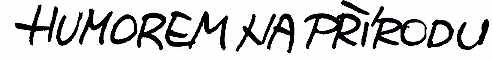 HUMOREM NA PŘÍRODU